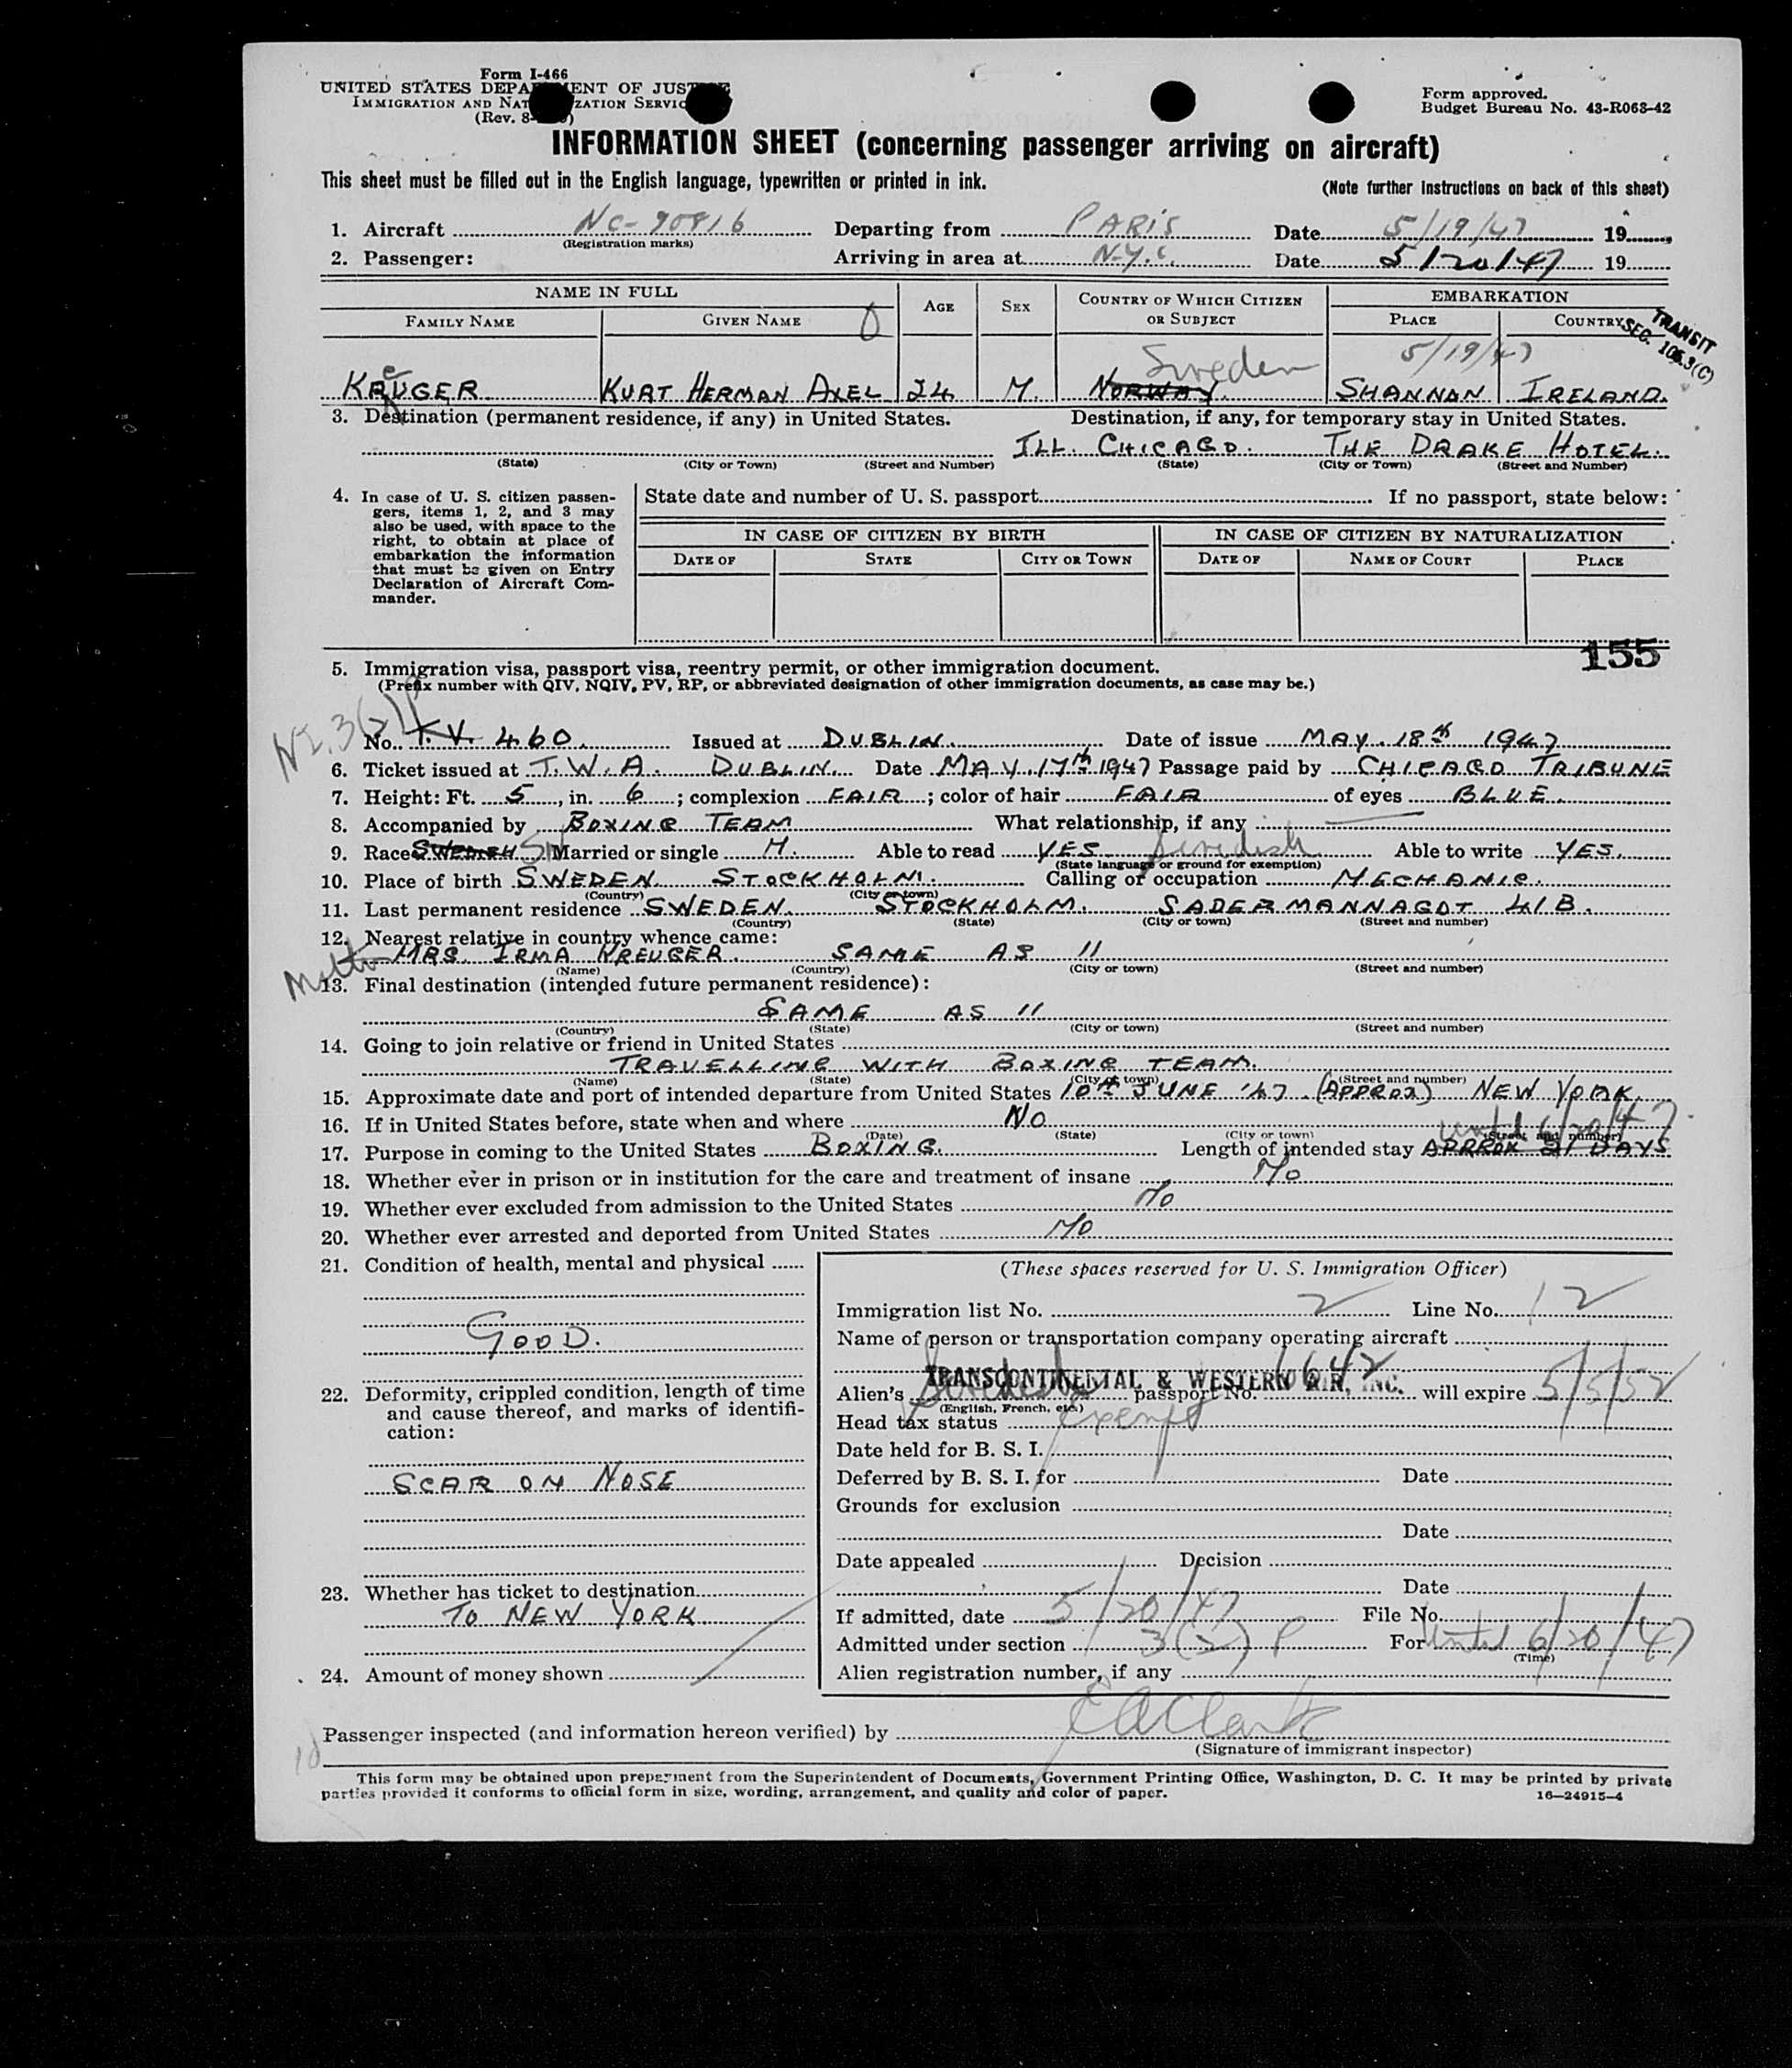 Form I-466
UNITED STATES DEPARTMENT OF JUSTICE
IMMIGRATION AND NATURALIZATION SERVICE
(Rev. 8-
Form approved.
Budget Bureau No. 43-R063-42
INFORMATION SHEET (concerning passenger arriving on aircraft)
This sheet must be filled out in the English language, typewritten or printed in ink.
(Note further instructions on back of this sheet)
1. Aircraft NC-90816 Departing from PARIS Date 5/19/47 19
(Registration marks)
2. Passenger: Arriving in area at N.Y.C. Date 5/20/47 19
NAME IN FULL AGE SEX COUNTRY OF WHICH CITIZEN OR SUBJECT EMBARKATION
FAMILY NAME GIVEN NAME PLACE COUNTRY
TRANSIT
SEC. 105.3(C)
Sweden 5/19/47
KREUGER KURT HERMAN AXEL 24 M. NORWAY. SHANNAN IRELAND.
3. Destination (permanent residence, if any) in United States. Destination, if any, for temporary stay in United States.
ILL. CHICAGO. THE DRAKE HOTEL.
(State) (City or Town) (Street and Number) (State) (City or Town) (Street and Number)
4. In case of U. S. citizen passen-
gers, items 1, 2, and 3 may
also be used, with space to the
right, to obtain at place of
embarkation the information
that must be given on Entry
Declaration of Aircraft Com-
mander.
State date and number of U. S. passport If no passport, state below:
IN CASE OF CITIZEN BY BIRTH IN CASE OF CITIZEN BY NATURALIZATION
DATE OF STATE CITY OR TOWN DATE OF NAME OF COURT PLACE
155
5. Immigration visa, passport visa, reentry permit, or other immigration document.
(Prefix number with QIV, NQIV, PV, RP, or abbreviated designation of other immigration documents, as case may be.)
No. T.V. 460. Issued at DUBLIN. Date of issue MAY. 18th 1947
6. Ticket issued at T.W.A. DUBLIN. Date MAY. 17th 1947 Passage paid by CHICAGO TRIBUNE
7. Height: Ft. 5, in. 6; complexion FAIR; color of hair FAIR of eyes BLUE.
8. Accompanied by BOXING TEAM What relationship, if any
9. Race SWEDISH Married or single M. Able to read YES Swedish Able to write YES.
(State language or ground for exemption)
10. Place of birth SWEDEN STOCKHOLM. Calling or occupation MECHANIC.
(Country) (City or town)
11. Last permanent residence SWEDEN. STOCKHOLM. SADERMANNAGOT 41B.
(Country) (State) (City or town) (Street and number)
12. Nearest relative in country whence came:
Mother MRS. IRMA KREUGER. SAME AS 11
(Name) (Country) (City or town) (Street and number)
13. Final destination (intended future permanent residence):
SAME AS 11
(Country) (State) (City or town) (Street and number)
14. Going to join relative or friend in United States
TRAVELLING WITH BOXING TEAM.
(Name) (State) (City or town) (Street and number)
15. Approximate date and port of intended departure from United States 10th JUNE '47 (APPROX) NEW YORK.
16. If in United States before, state when and where NO
(Date) (State) (City or town) (Street and number)
until 6/20/47
17. Purpose in coming to the United States BOXING. Length of intended stay APPROX 21 DAYS
18. Whether ever in prison or in institution for the care and treatment of insane NO
19. Whether ever excluded from admission to the United States NO
20. Whether ever arrested and deported from United States NO
21. Condition of health, mental and physical
GOOD.
22. Deformity, crippled condition, length of time
and cause thereof, and marks of identifi-
cation:
SCAR ON NOSE
23. Whether has ticket to destination
TO NEW YORK
24. Amount of money shown
(These spaces reserved for U. S. Immigration Officer)
Immigration list No. 2 Line No. 12
Name of person or transportation company operating aircraft
TRANSCONTINENTAL & WESTERN AIR, INC.
Alien's Swedish passport No. 6642 will expire 5/5/52
(English, French, etc.)
Head tax status Exempt
Date held for B. S. I.
Deferred by B. S. I. for Date
Grounds for exclusion
Date
Date appealed Decision
Date
If admitted, date 5/20/47 File No.
Admitted under section 3(2) P For until 6/20/47
(Time)
Alien registration number, if any
Passenger inspected (and information hereon verified) by EA Clark
(Signature of immigrant inspector)
This form may be obtained upon prepayment from the Superintendent of Documents, Government Printing Office, Washington, D. C. It may be printed by private
parties provided it conforms to official form in size, wording, arrangement, and quality and color of paper.
16—24915-4